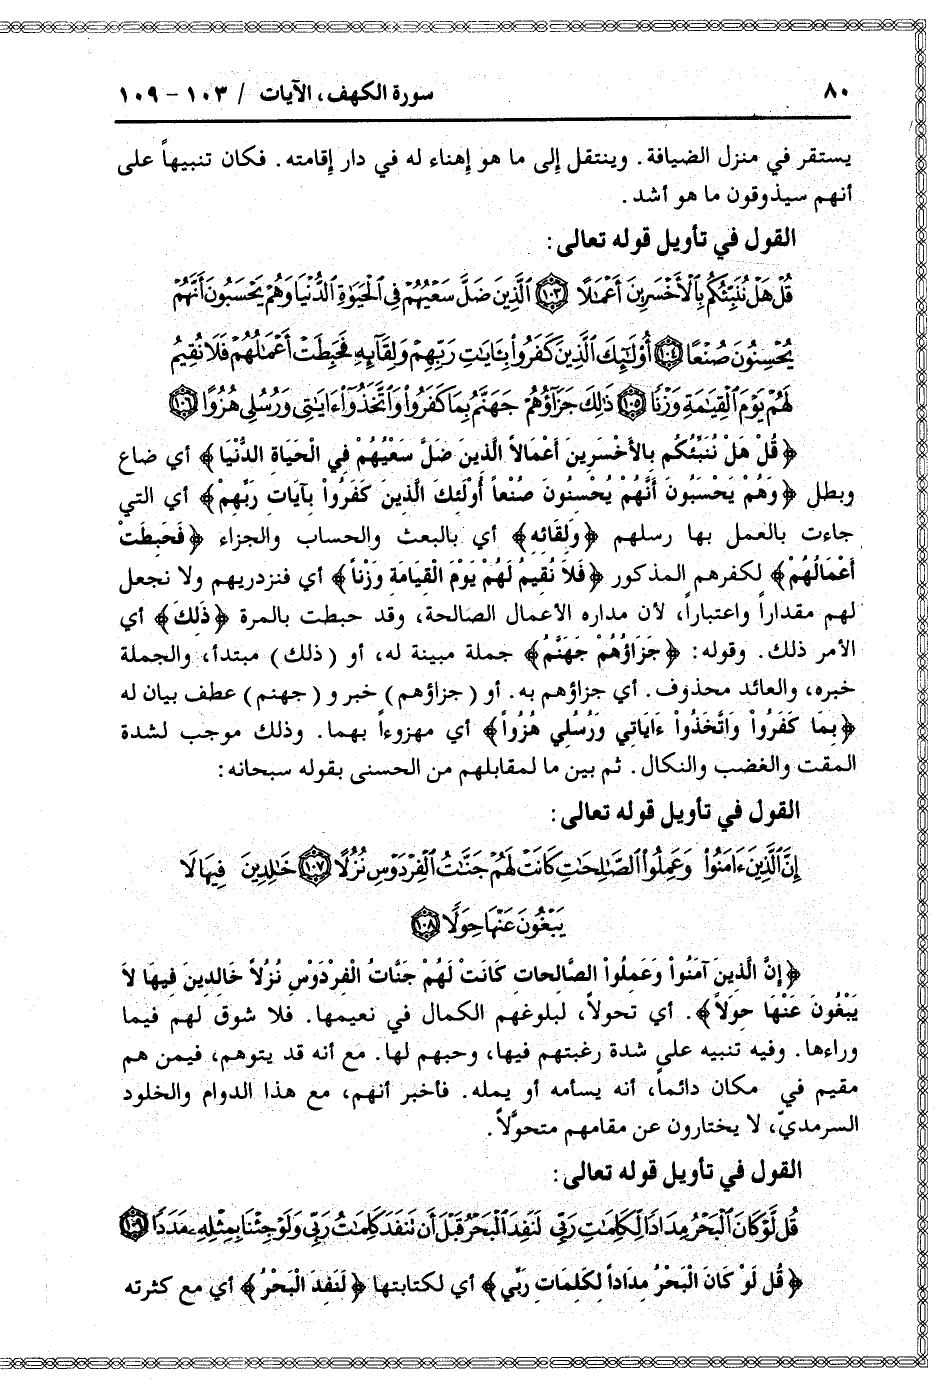 ٨٠ سورة الكهف، الآيات / ١٠٣ - ١٠٩
يستقر في منزل الضيافة. وينتقل إلى ما هو إهناء له في دار إقامته. فكان تنبيهاً على
أنهم سيذوقون ما هو أشد.
القول في تأويل قوله تعالى:
قُلْ هَلْ نُنَبِّئُكُم بِالْأَخْسَرِينَ أَعْمَالًا ١٠٣ الَّذِينَ ضَلَّ سَعْيُهُمْ فِي الْحَيَوٰةِ الدُّنْيَا وَهُمْ يَحْسَبُونَ أَنَّهُمْ
يُحْسِنُونَ صُنْعًا ١٠٤ أُولَٰئِكَ الَّذِينَ كَفَرُوا بِـَٔايَاتِ رَبِّهِمْ وَلِقَائِهِ فَحَبِطَتْ أَعْمَالُهُمْ فَلَا نُقِيمُ
لَهُمْ يَوْمَ الْقِيَامَةِ وَزْنًا ١٠٥ ذَٰلِكَ جَزَاؤُهُمْ جَهَنَّمُ بِمَا كَفَرُوا وَاتَّخَذُوا ءَايَاتِي وَرُسُلِي هُزُوًا ١٠٦
﴿قُلْ هَلْ نُنَبِّئُكُم بِالأَخْسَرِينَ أَعْمَالاً الَّذِينَ ضَلَّ سَعْيُهُمْ فِي الْحَيَاةِ الدُّنْيَا﴾ أي ضاع
وبطل ﴿وَهُمْ يَحْسَبُونَ أَنَّهُمْ يُحْسِنُونَ صُنْعاً أُوْلَئِكَ الَّذِينَ كَفَرُواْ بِآيَاتِ رَبِّهِمْ﴾ أي التي
جاءت بالعمل بها رسلهم ﴿وَلِقَائِهِ﴾ أي بالبعث والحساب والجزاء ﴿فَحَبِطَتْ
أَعْمَالُهُمْ﴾ لكفرهم المذكور ﴿فَلاَ نُقِيمُ لَهُمْ يَوْمَ الْقِيَامَةِ وَزْناً﴾ أي فنزدريهم ولا نجعل
لهم مقداراً واعتباراً، لأن مداره الأعمال الصالحة، وقد حبطت بالمرة ﴿ذَلِكَ﴾ أي
الأمر ذلك. وقوله: ﴿جَزَاؤُهُمْ جَهَنَّمُ﴾ جملة مبينة له، أو (ذلك) مبتدأ، والجملة
خبره، والعائد محذوف. أي جزاؤهم به. أو (جزاؤهم) خبر و(جهنم) عطف بيان له
﴿بِمَا كَفَرُواْ وَاتَّخَذُواْ ءَايَاتِي وَرُسُلِي هُزُواً﴾ أي مهزوءاً بهما. وذلك موجب لشدة
المقت والغضب والنكال. ثم بين ما لمقابلهم من الحسنى بقوله سبحانه:
القول في تأويل قوله تعالى:
إِنَّ الَّذِينَ ءَامَنُوا وَعَمِلُوا الصَّالِحَاتِ كَانَتْ لَهُمْ جَنَّاتُ الْفِرْدَوْسِ نُزُلًا ١٠٧ خَالِدِينَ فِيهَا لَا
يَبْغُونَ عَنْهَا حِوَلًا ١٠٨
﴿إِنَّ الَّذِينَ آمَنُواْ وَعَمِلُواْ الصَّالِحَاتِ كَانَتْ لَهُمْ جَنَّاتُ الْفِرْدَوْسِ نُزُلاً خَالِدِينَ فِيهَا لاَ
يَبْغُونَ عَنْهَا حِوَلاً﴾. أي تحولاً، لبلوغهم الكمال في نعيمها. فلا شوق لهم فيما
وراءها. وفيه تنبيه على شدة رغبتهم فيها، وحبهم لها. مع أنه قد يتوهم، فيمن هم
مقيم في مكان دائماً، أنه يسأمه أو يمله. فأخبر أنهم، مع هذا الدوام والخلود
السرمديّ، لا يختارون عن مقامهم متحوَّلاً.
القول في تأويل قوله تعالى:
قُل لَّوْ كَانَ الْبَحْرُ مِدَادًا لِّكَلِمَاتِ رَبِّي لَنَفِدَ الْبَحْرُ قَبْلَ أَن تَنفَدَ كَلِمَاتُ رَبِّي وَلَوْ جِئْنَا بِمِثْلِهِ مَدَدًا ١٠٩
﴿قُل لَوْ كَانَ الْبَحْرُ مِدَاداً لِكَلِمَاتِ رَبِّي﴾ أي لكتابتها ﴿لَنَفِدَ الْبَحْرُ﴾ أي مع كثرته